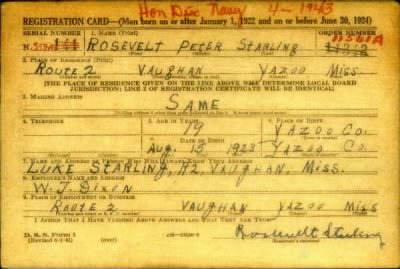 Hon Disc Navy 4-1943
REGISTRATION CARD—(Men born on or after January 1, 1922 and on or before June 30, 1924)
SERIAL NUMBER 1. NAME (Print) ORDER NUMBER
ROSEVELT PETER STARLING
2. PLACE OF RESIDENCE (Print)
ROUTE 2 VAUGHAN YAZOO MISS.
[THE PLACE OF RESIDENCE GIVEN ON THE LINE ABOVE WILL DETERMINE LOCAL BOARD
JURISDICTION; LINE 2 OF REGISTRATION CERTIFICATE WILL BE IDENTICAL]
3. MAILING ADDRESS
SAME
4. TELEPHONE 5. AGE IN YEARS
19 YAZOO CO.
DATE OF BIRTH
AUG. 15 1923 YAZOO CO.
7. NAME AND ADDRESS OF PERSON WHO WILL ALWAYS KNOW YOUR ADDRESS
LUKE STARLING, R2, VAUGHAN, MISS.
8. EMPLOYER'S NAME AND ADDRESS
W. J. DIXON
9. PLACE OF EMPLOYMENT OR BUSINESS
ROUTE 2 VAUGHAN YAZOO MISS
I AFFIRM THAT I HAVE VERIFIED ABOVE ANSWERS AND THAT THEY ARE TRUE.
D. S. S. Form 1
Roosevelt Starling